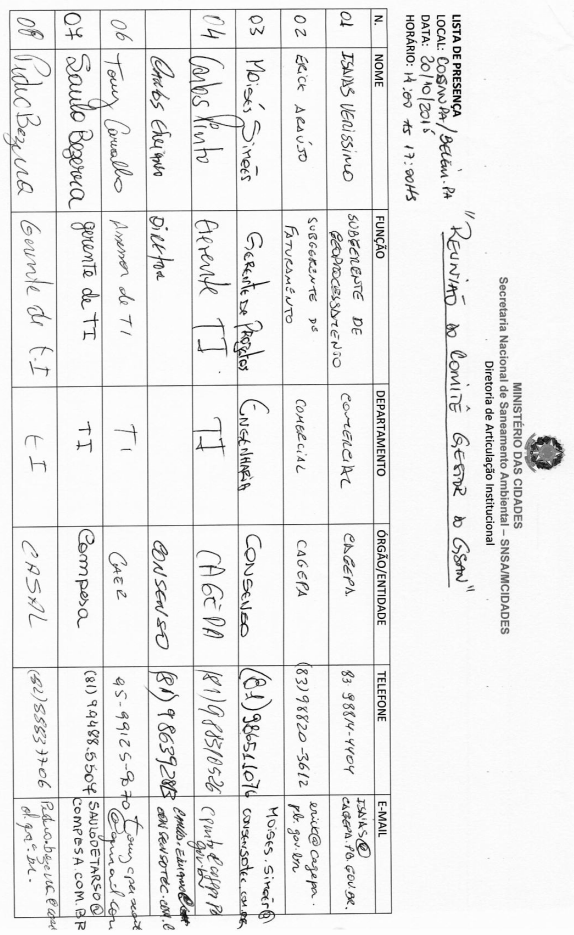 MINISTÉRIO DAS CIDADES
Secretaria Nacional de Saneamento Ambiental – SNSA/MCIDADES
Diretoria de Articulação Institucional
"REUNIÃO DO COMITÊ GESTOR DO GSAN"
LISTA DE PRESENÇA
LOCAL: COSANPA/BELÉM-PA
DATA: 20/10/2016
HORÁRIO: 14:00 ÀS 17:00HS
N. NOME FUNÇÃO DEPARTAMENTO ÓRGÃO/ENTIDADE TELEFONE E-MAIL
01 ISAIAS VERISSIMO SUBGERENTE DE GEOPROCESSAMENTO COMERCIAL CAGEPA 83 98814-4404 ISAIAS@CAGEPA.PB.GOV.BR.
02 ERICK ARAÚJO SUBGERENTE DE FATURAMENTO COMERCIAL CAGEPA (83)98820-3612 erick@cagepa.pb.gov.br
03 Moisés Simões GERENTE DE PROJETOS ENGENHARIA CONSENSO (81)986511076 MOISES.SIMOES@CONSENSOTEC.COM.BR
04 Carlos Pinto Gerente TI. TI CAGEPA
Carlos Diretor CONSENSO
06 Tony Carvalho Assessor de TI TI CAER 95-99125-9070
07 Saulo Bezerra gerente de TI TI Compesa (81)99488.5504 SAULODETARSO@COMPESA.COM.BR
08 Pedro Bezerra Gerente de t.I t I CASAL